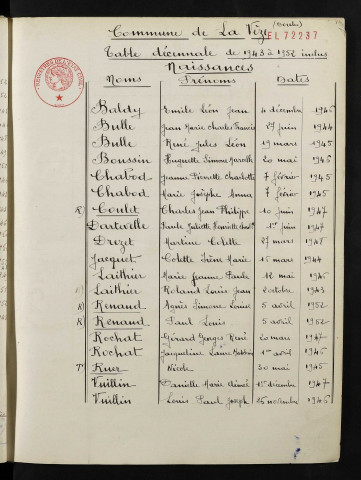 Commune de La Vèze (Doubs)
EL 72237
Table décennale de 1943 à 1952 inclus
Naissances
Noms Prénoms Dates
Baldy Emile Léon Jean 4 décembre 1946
Bulle Jean Marie Charles Francis juin 1944
Bulle René Jules Léon 19 mars 1945
Boussin Huguette Simone 20 mai 1946
Chabod Jeanne Pierrette Charlotte 7 février 1945
Chabod Marie Josèphe Anna 7 février 1945
Coulet Charles Jean Philippe 10 juin 1947
Paule Juliette Henriette 1er juin 1947
Drezet Martine Colette mars 1948
Jacquet Colette Irène Marie 15 mars 1944
Laithier Marie Jeanne Paule 12 mai 1945
Laithier Roland Louis Jean 2 octobre 1943
Renaud Agnès Simone Louise 5 avril 1952
Renaud Paul Louis 5 avril 1952
Rochat Gérard Georges René 20 mars 1947
Rochat Jacqueline 1er avril 1945
Ruer Nicole 30 mai 1945
Vuillin Danielle Marie Aimée décembre 1947
Vuillin Louis Paul Joseph 25 novembre 1945